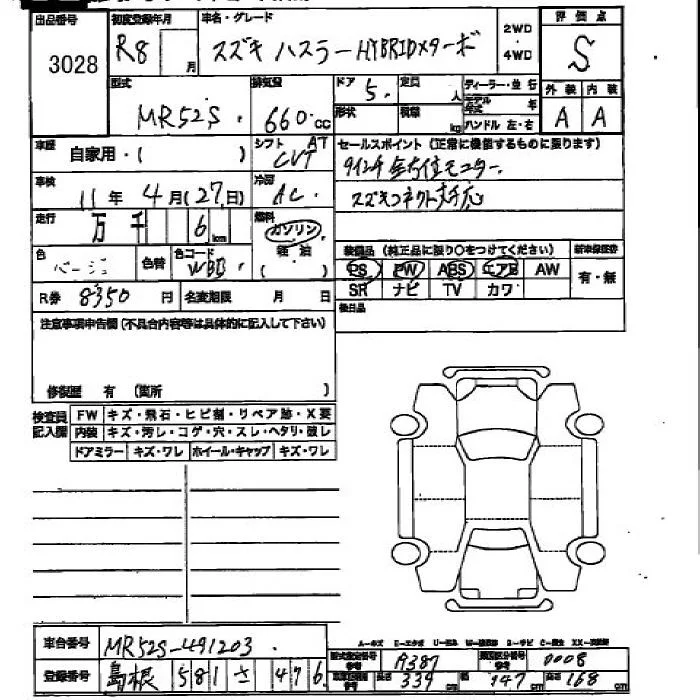 出品番号 初度登録年月 車名・グレード 2WD 4WD 評価点
3028 R8 月 スズキ ハスラー HYBRIDXターボ S
型式 排気量 ドア 定員 ディーラー・並行 外装 内装
MR52S 660 cc 5 人 モデル年式 年 A A
形状 積載 kg ハンドル 左・右
車歴 自家用・( ) シフト AT CVT
セールスポイント(正常に機能するものに限ります)
9インチ 全方位モニター
スズキコネクト対応
車検 11年 4月(27日) 冷房 AC
走行 万 千 6 km 燃料 ガソリン 軽油 ( )
色 ベージュ 色替 色コード WBB
装備品(純正品に限り○をつけてください) 新車保証書
PS PW ABS エアB AW 有・無
SR ナビ TV カワ
R券 8350 円 名変期限 月 日
後日品
注意事項申告欄(不具合内容等は具体的に記入して下さい)
修復歴 有 (箇所 )
検査員記入欄 FW キズ・飛石・ヒビ割・リペア跡・X要
内装 キズ・汚レ・コゲ・穴・スレ・ヘタリ・破レ
ドアミラー キズ・ワレ ホイール・キャップ キズ・ワレ
車台番号 MR52S-491203
登録番号 島根 581 さ 476
A387 0008
長さ 339 cm 幅 147 cm 高さ 168 cm